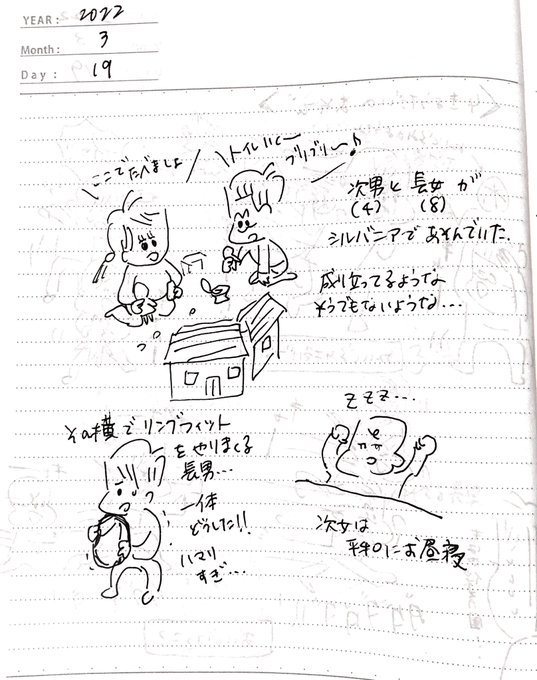 YEAR: 2022
Month: 3
Day: 19
ここでたべましょ
トイレいくー
ブリブリ〜♪
次男と長女が
(4) (8)
シルバニアであそんでいた.
成り立ってるような
そうでもないような...
その横でリングフィット
をやりまくる
長男...
一体
どうした!!
ハマり
すぎ...
ZZZ...
次女は
平和にお昼寝